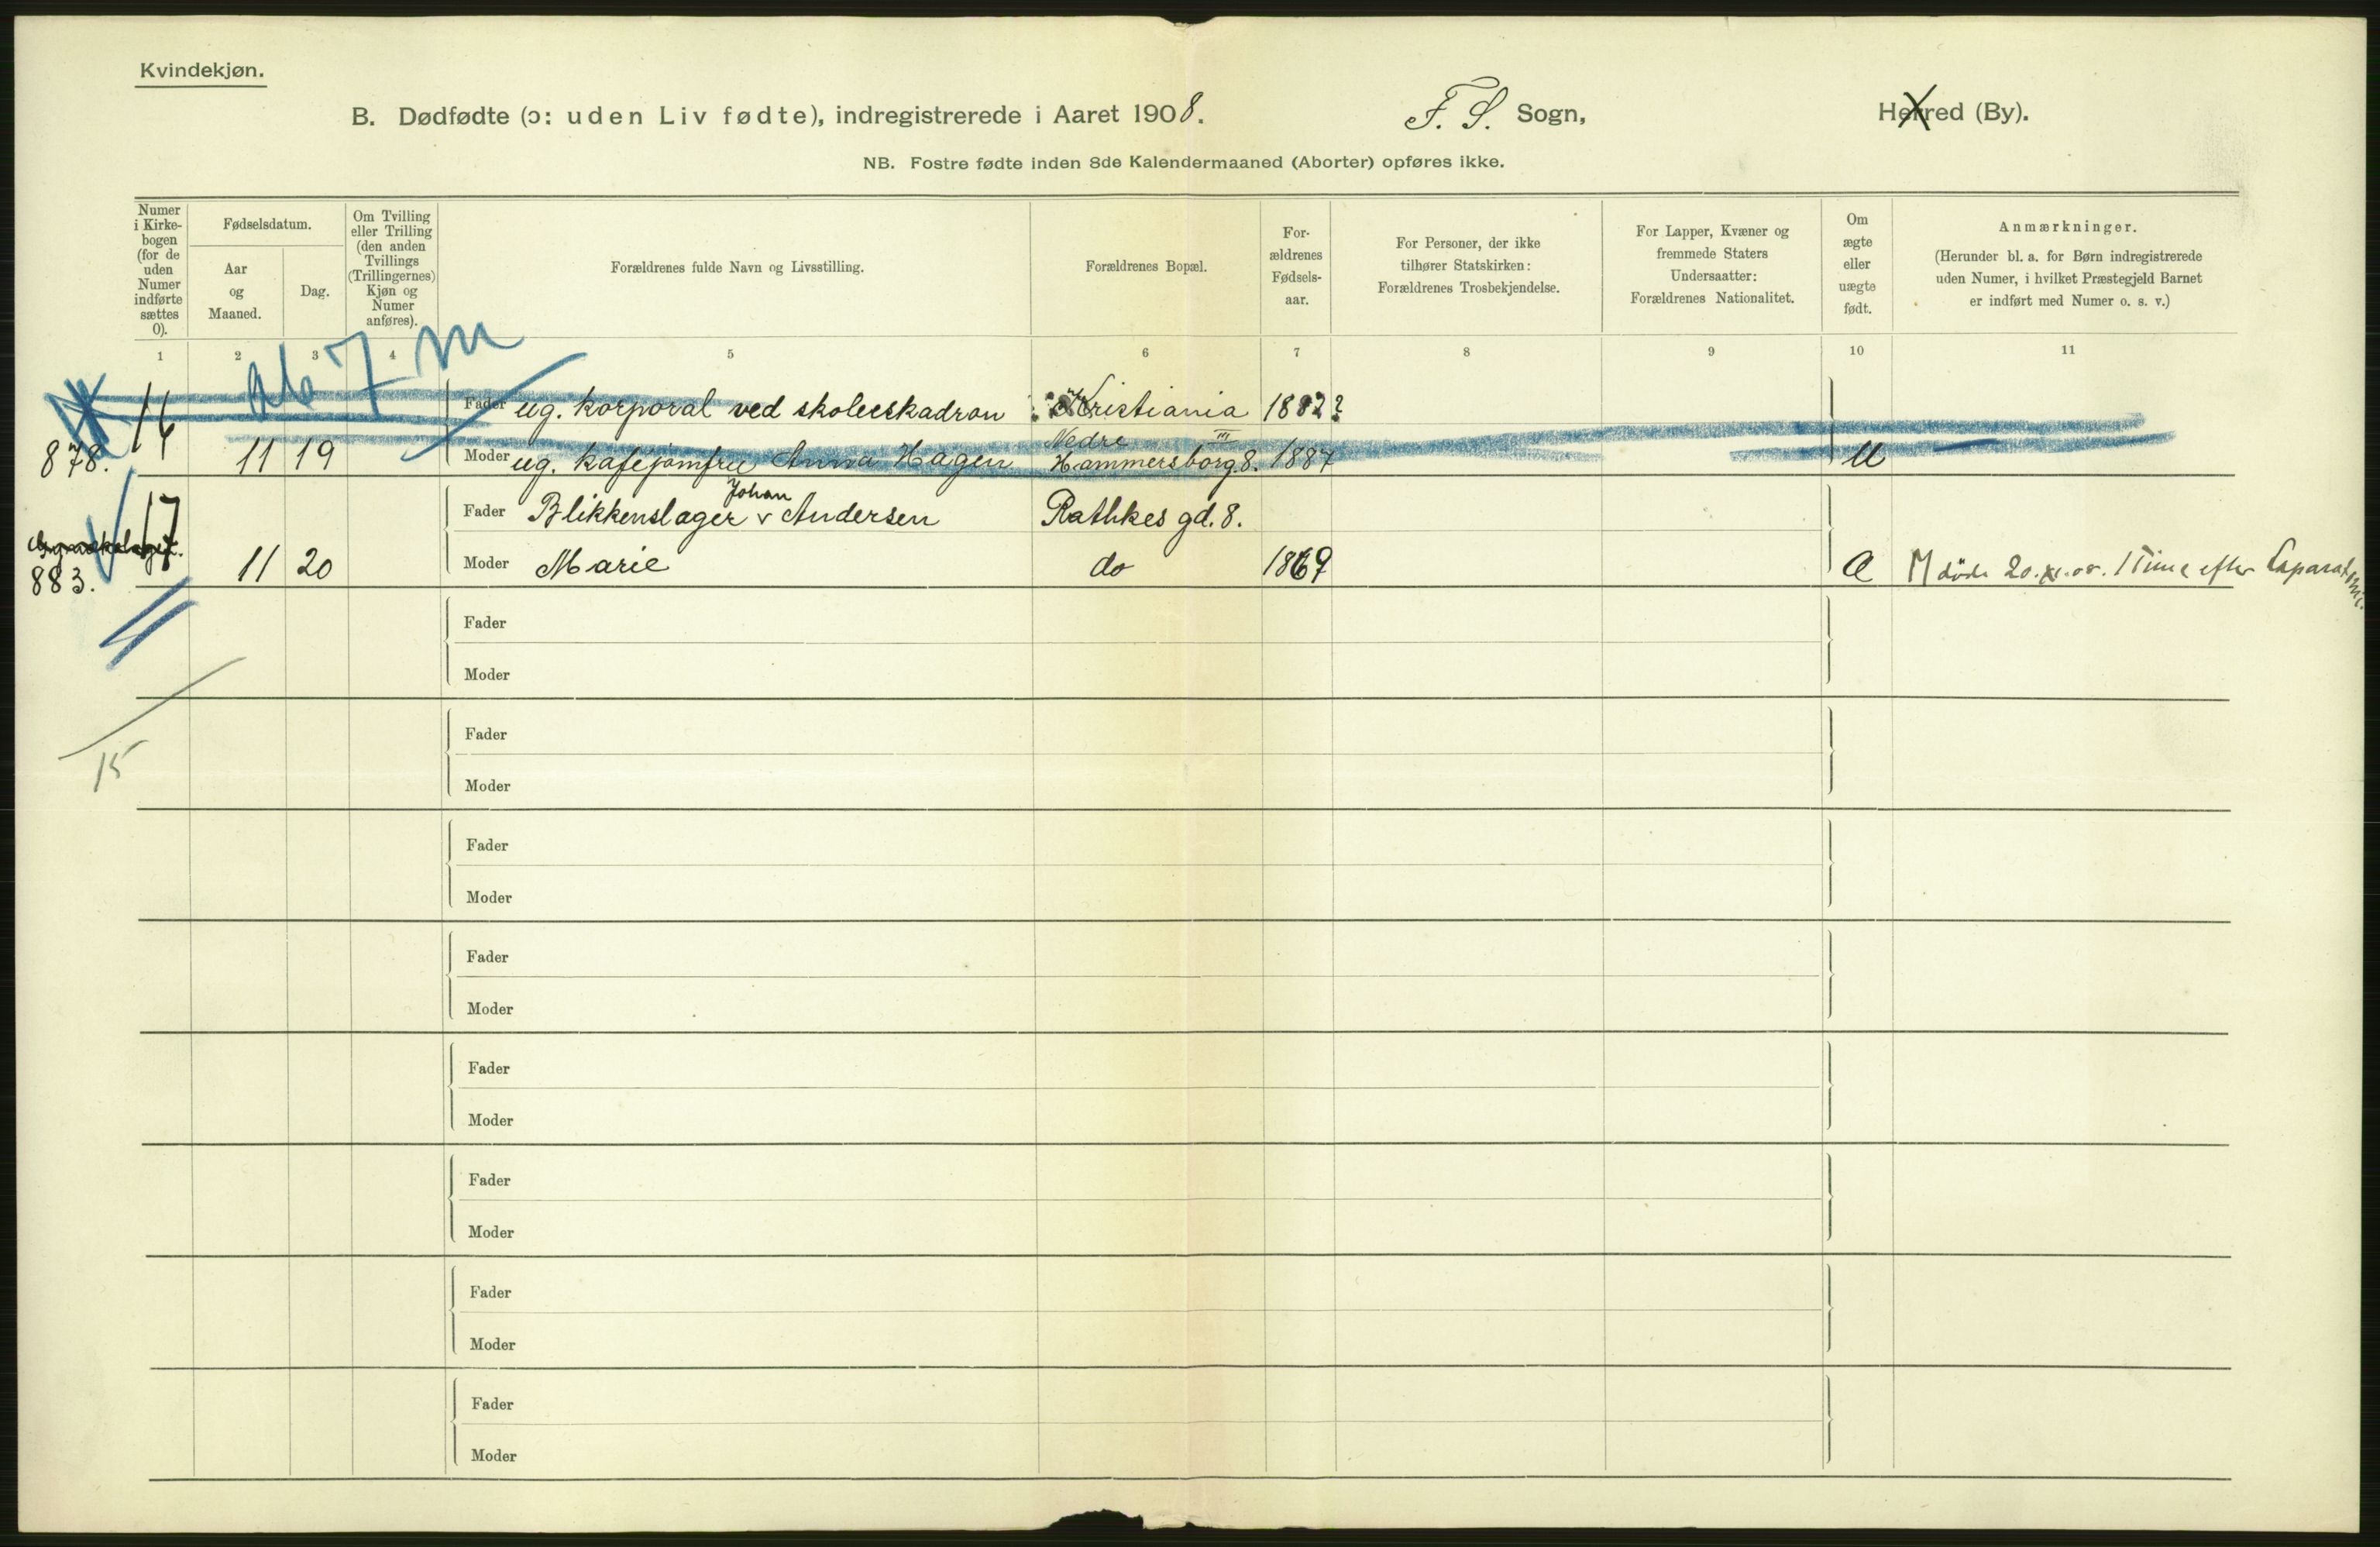 Kvindekjøn.
B. Dødfødte (ɔ: uden Liv fødte), indregistrerede i Aaret 1908. F. S. Sogn, Herred (By).
NB. Fostre fødte inden 8de Kalendermaaned (Aborter) opføres ikke.
Numer
i Kirke-
bogen
(for de
uden
Numer
indførte
sættes
0).
Fødselsdatum.
Aar
og
Maaned.
Dag.
Om Tvilling
eller Trilling
(den anden
Tvillings
(Trillingernes)
Kjøn og
Numer
anføres).
Forældrenes fulde Navn og Livsstilling.
Forældrenes Bopæl.
For-
ældrenes
Fødsels-
aar.
For Personer, der ikke
tilhører Statskirken:
Forældrenes Trosbekjendelse.
For Lapper, Kvæner og
fremmede Staters
Undersaatter:
Forældrenes Nationalitet.
Om
ægte
eller
uægte
født.
Anmærkninger.
(Herunder bl. a. for Børn indregistrerede
uden Numer, i hvilket Præstegjeld Barnet
er indført med Numer o. s. v.)
1 2 3 4 5 6 7 8 9 10 11
ab 7 m
16 Fader ug. korporal ved skoleeskadron Kristiania 1882?
Nedre III
878. 11 19 Moder ug. kaféjomfru Anna Hagen Hammersborg. 8. 1887 U
Johan
17 Fader Blikkenslager v Andersen Rathkes gd. 8.
883. 11 20 Moder Marie do 1869 Æ M døde 20.XI.08. 1 Time efter Laparatomi.
Fader
Moder
15
Fader
Moder
Fader
Moder
Fader
Moder
Fader
Moder
Fader
Moder
Fader
Moder
Fader
Moder